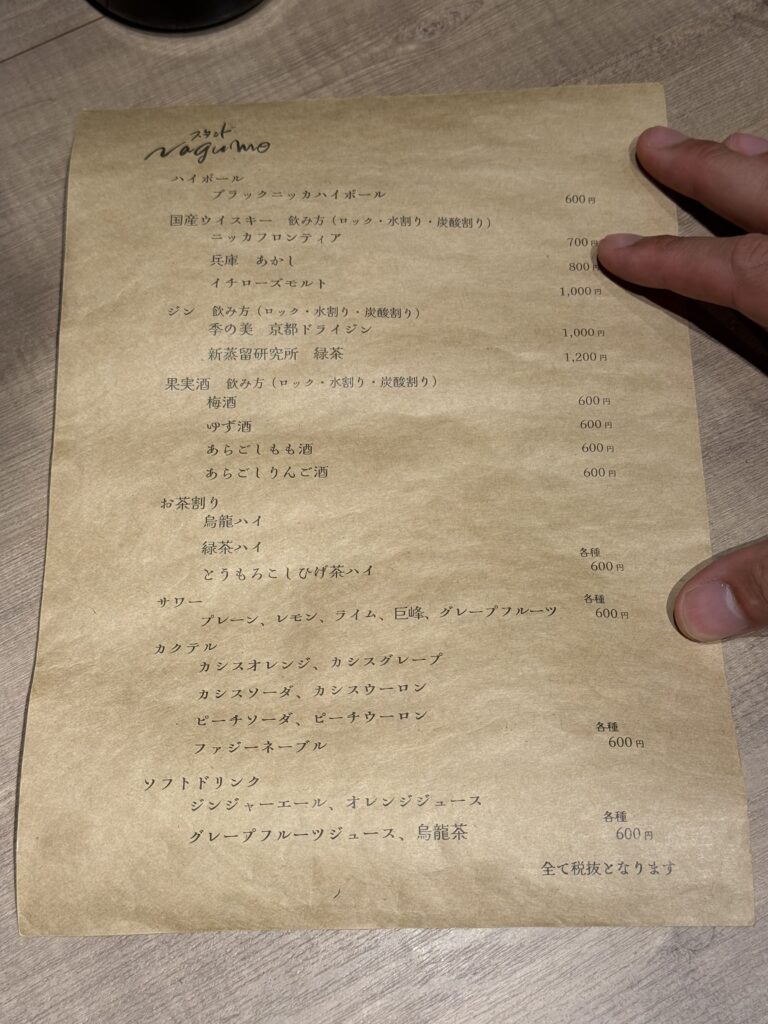 スタンド
Nagumo
ハイボール
ブラックニッカハイボール 600円
国産ウイスキー 飲み方(ロック・水割り・炭酸割り)
ニッカフロンティア 700円
兵庫 あかし 800円
イチローズモルト 1,000円
ジン 飲み方(ロック・水割り・炭酸割り)
季の美 京都ドライジン 1,000円
新蒸留研究所 緑茶 1,200円
果実酒 飲み方(ロック・水割り・炭酸割り)
梅酒 600円
ゆず酒 600円
あらごしもも酒 600円
あらごしりんご酒 600円
お茶割り
烏龍ハイ
緑茶ハイ 各種
とうもろこしひげ茶ハイ 600円
サワー 各種
プレーン、レモン、ライム、巨峰、グレープフルーツ 600円
カクテル
カシスオレンジ、カシスグレープ
カシスソーダ、カシスウーロン
ピーチソーダ、ピーチウーロン 各種
ファジーネーブル 600円
ソフトドリンク
ジンジャーエール、オレンジジュース 各種
グレープフルーツジュース、烏龍茶 600円
全て税抜となります